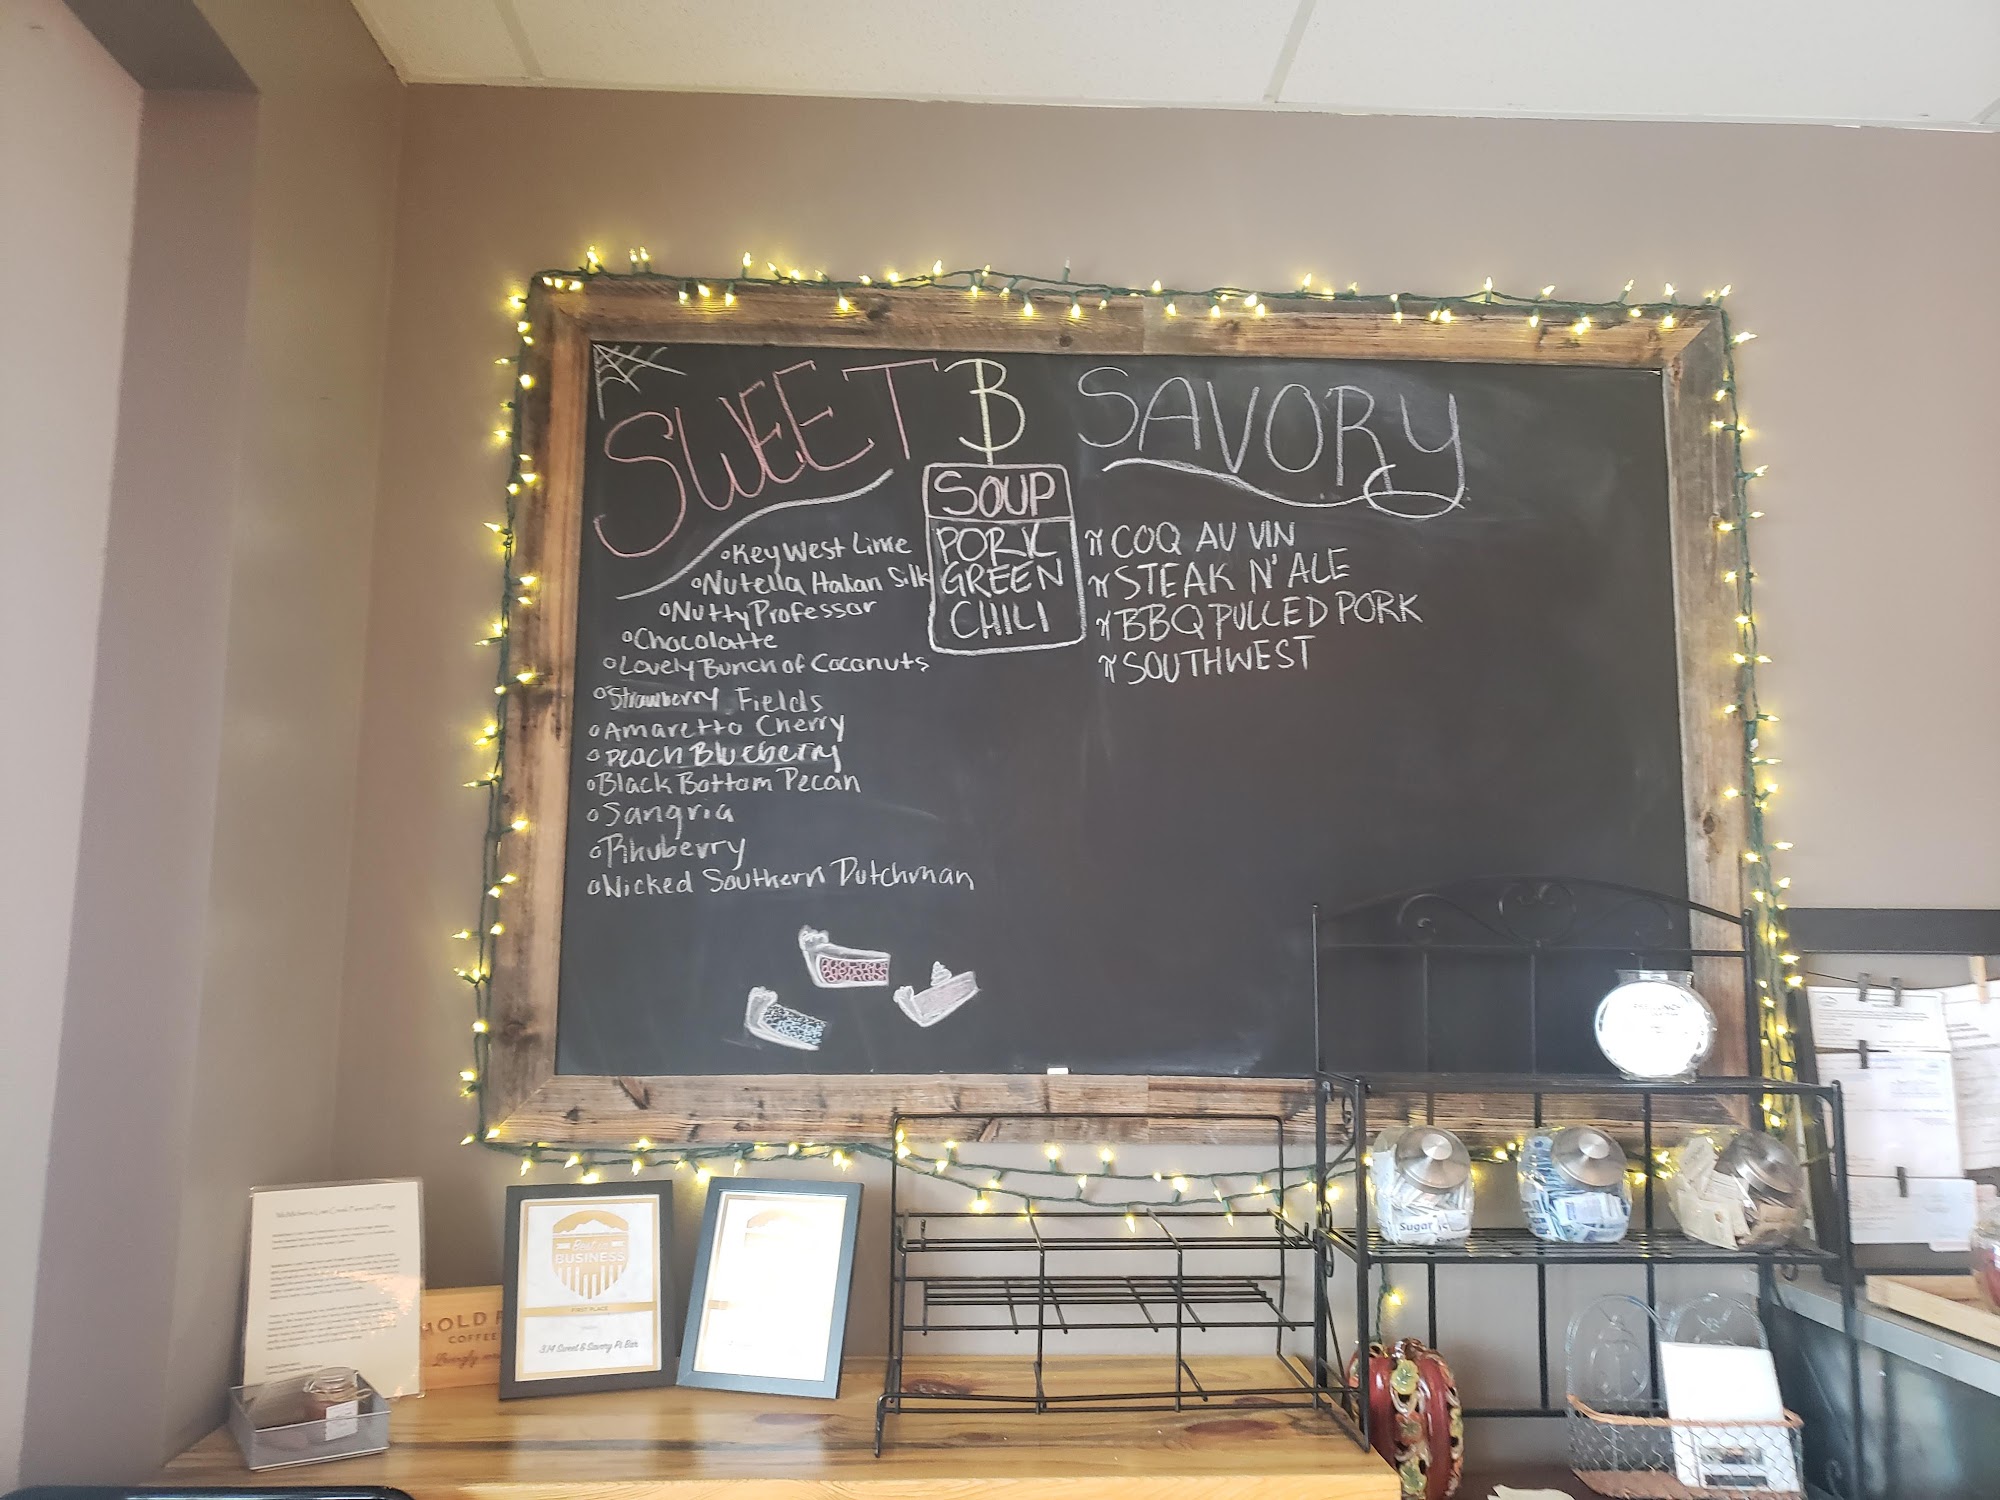 SWEET
B
SAVORY
SOUP
PORK
GREEN
CHILI
Key West Lime
Nutella Italian Silk
Nutty Professor
Chocolatte
Lovely Bunch of Coconuts
Strawberry Fields
Amaretto Cherry
Peach Blueberry
Black Bottom Pecan
Sangria
Rhuberry
Wicked Southern Dutchman
π COQ AU VIN
π STEAK N' ALE
π BBQ PULLED PORK
π SOUTHWEST
Best in
BUSINESS
FIRST PLACE
3.14 Sweet & Savory Pi Bar
COFFEE
Sugar